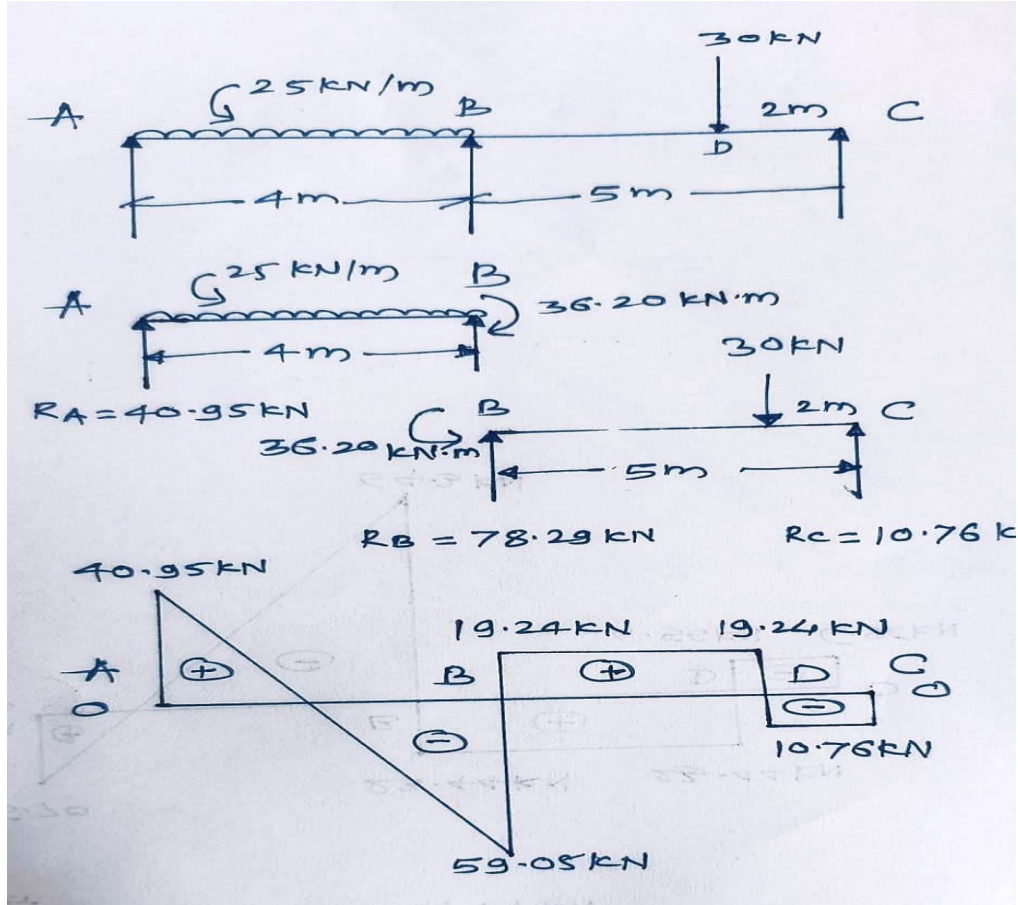 30KN
25KN/m
A B 2m C
D
4m 5m
25 KN/m B
A 36.20 KN.m
4m 30KN
RA=40.95KN B 2m C
36.20 KN.m
5m
RB = 78.29 KN RC = 10.76 K
40.95KN
19.24KN 19.24KN
A + B + D C
O - - O
10.76KN
59.05KN